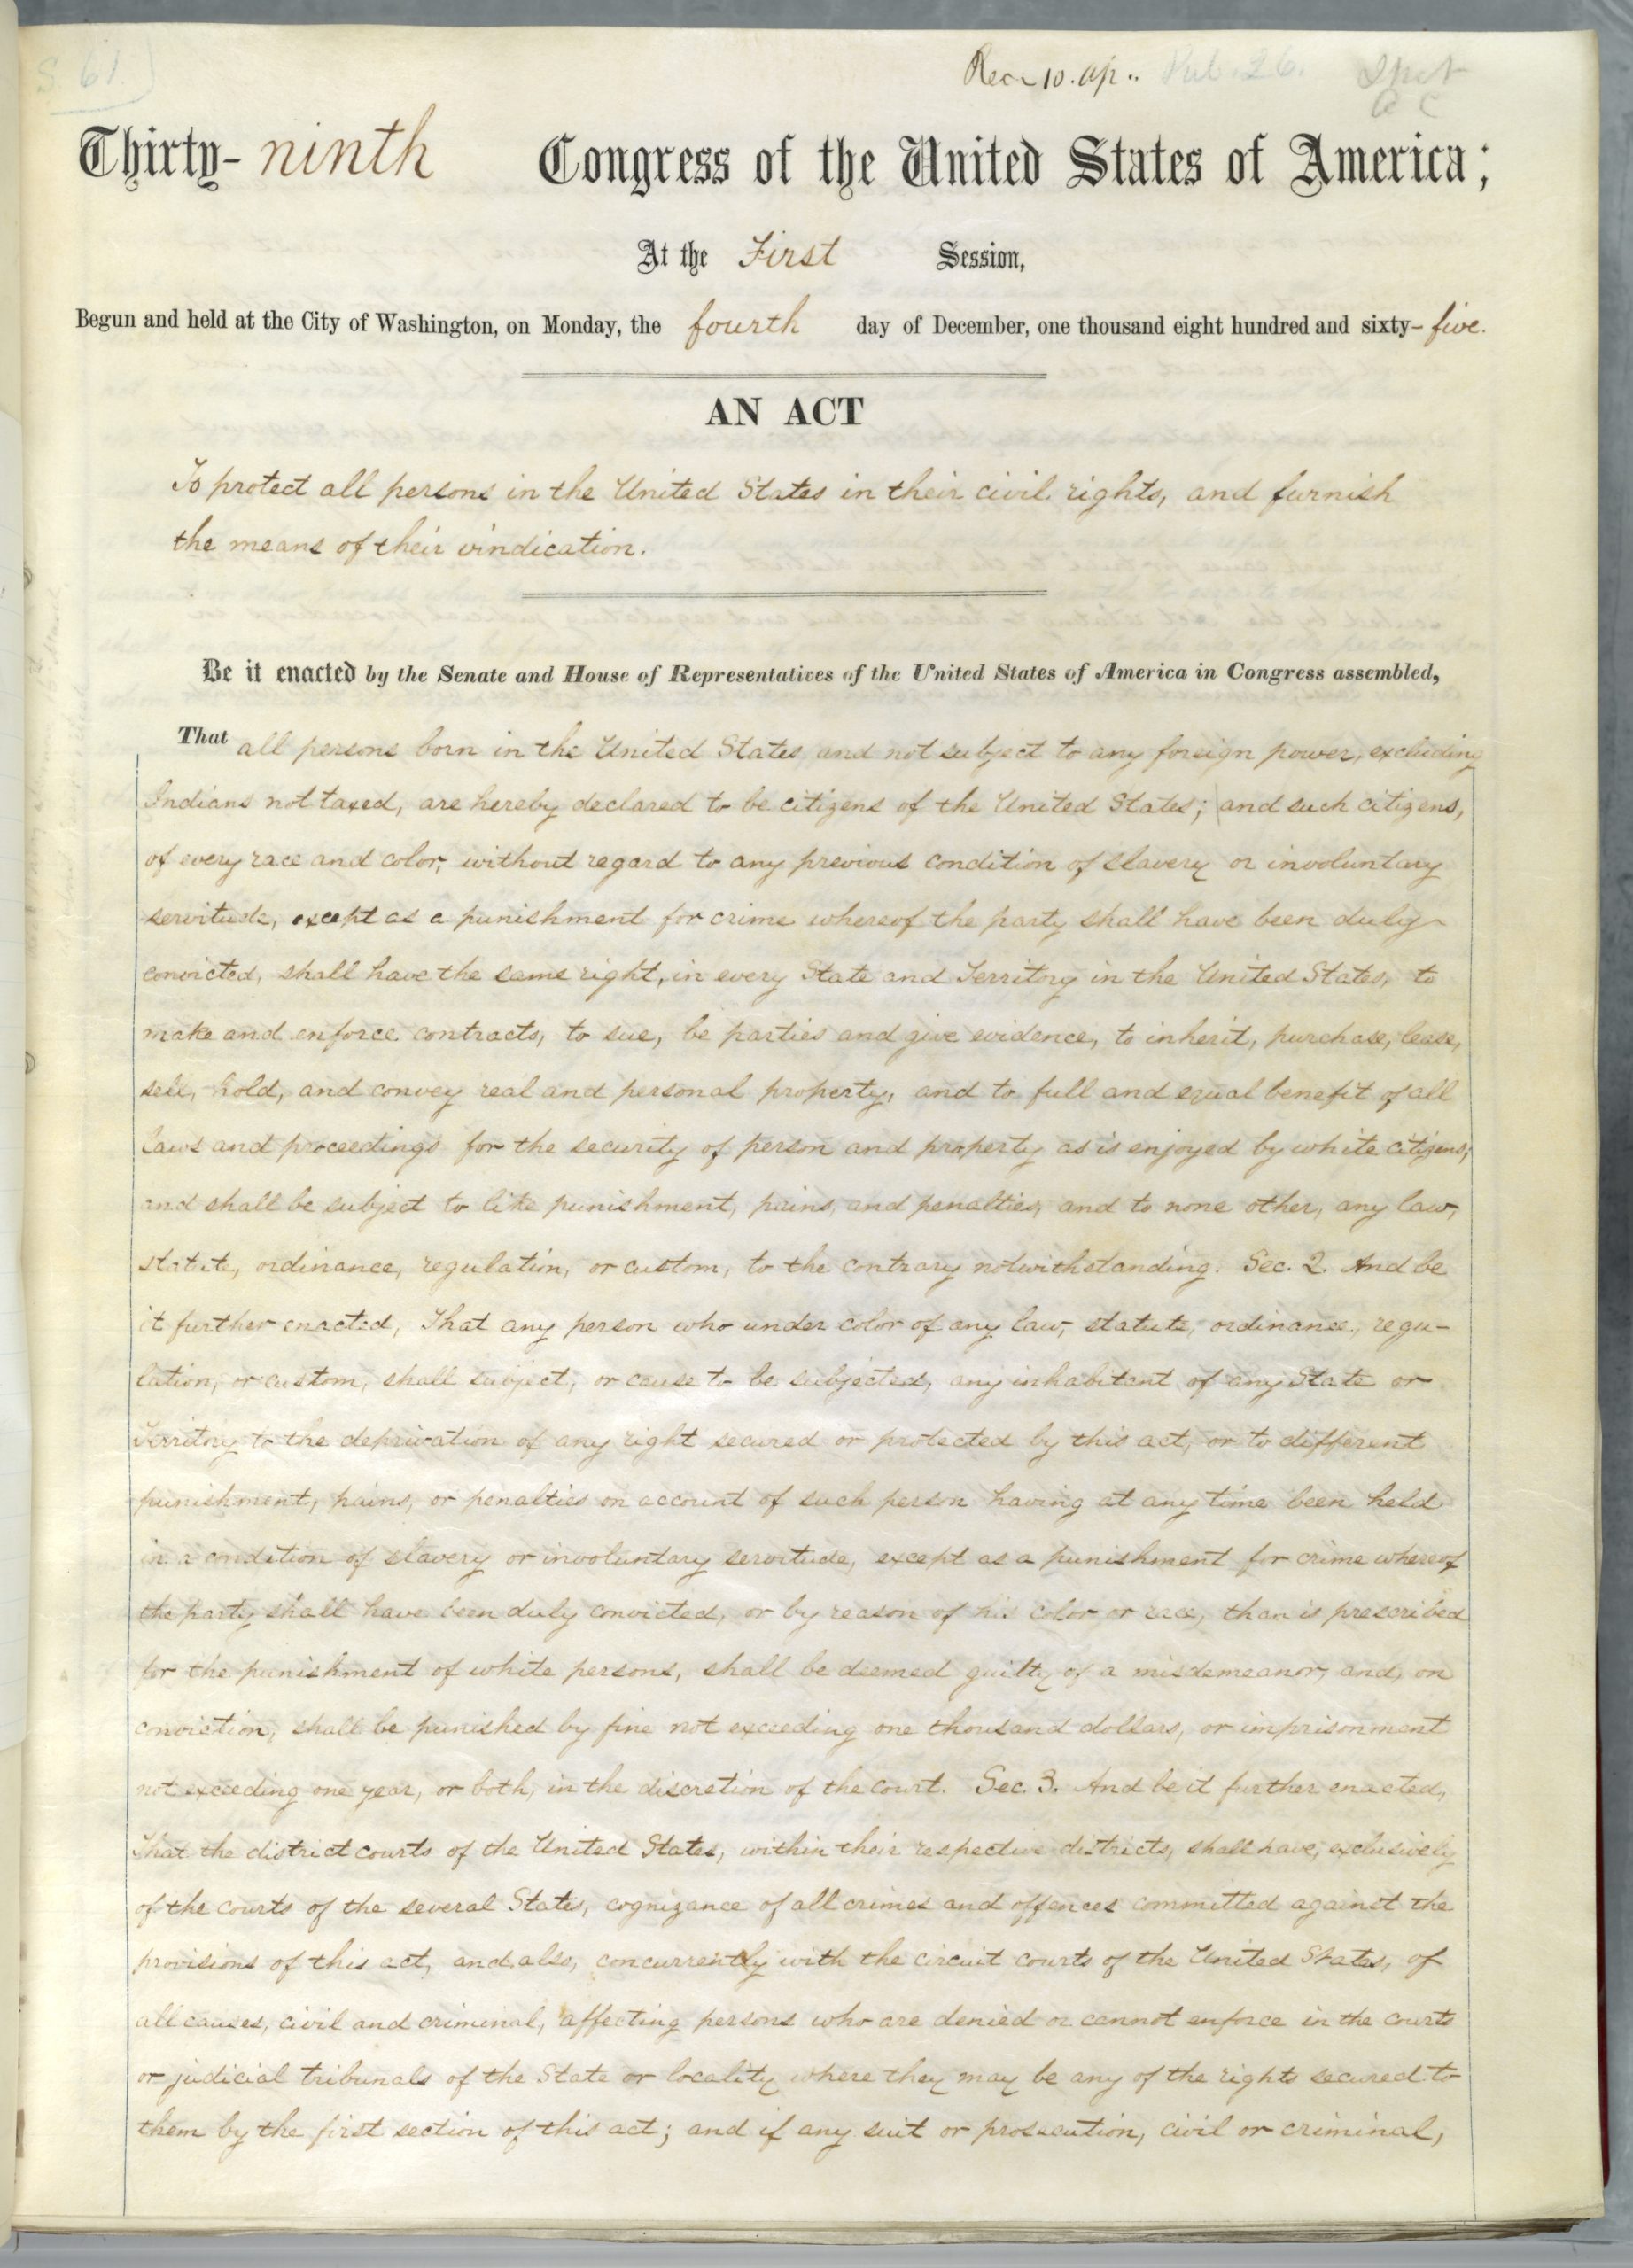 S. 61.
Rec. 10. Ap.. Pub. 26.
Thirty-ninth Congress of the United States of America;
At the First Session,
Begun and held at the City of Washington, on Monday, the fourth day of December, one thousand eight hundred and sixty-five.
AN ACT
To protect all persons in the United States in their civil rights, and furnish
the means of their vindication.
Be it enacted by the Senate and House of Representatives of the United States of America in Congress assembled,
That all persons born in the United States and not subject to any foreign power, excluding
Indians not taxed, are hereby declared to be citizens of the United States; and such citizens,
of every race and color, without regard to any previous condition of slavery or involuntary
servitude, except as a punishment for crime whereof the party shall have been duly
convicted, shall have the same right, in every State and Territory in the United States, to
make and enforce contracts, to sue, be parties and give evidence, to inherit, purchase, lease,
sell, hold, and convey real and personal property, and to full and equal benefit of all
laws and proceedings for the security of person and property as is enjoyed by white citizens,
and shall be subject to like punishment, pains, and penalties, and to none other, any law,
statute, ordinance, regulation, or custom, to the contrary notwithstanding. Sec. 2. And be
it further enacted, That any person who under color of any law, statute, ordinance, regu-
lation, or custom, shall subject, or cause to be subjected, any inhabitant of any State or
Territory to the deprivation of any right secured or protected by this act, or to different
punishment, pains, or penalties on account of such person having at any time been held
in a condition of slavery or involuntary servitude, except as a punishment for crime whereof
the party shall have been duly convicted, or by reason of his color or race, than is prescribed
for the punishment of white persons, shall be deemed guilty of a misdemeanor, and, on
conviction, shall be punished by fine not exceeding one thousand dollars, or imprisonment
not exceeding one year, or both, in the discretion of the court. Sec. 3. And be it further enacted,
That the district courts of the United States, within their respective districts, shall have, exclusively
of the courts of the several States, cognizance of all crimes and offences committed against the
provisions of this act, and also, concurrently with the circuit courts of the United States, of
all causes, civil and criminal, affecting persons who are denied or cannot enforce in the courts
or judicial tribunals of the State or locality where they may be any of the rights secured to
them by the first section of this act; and if any suit or prosecution, civil or criminal,